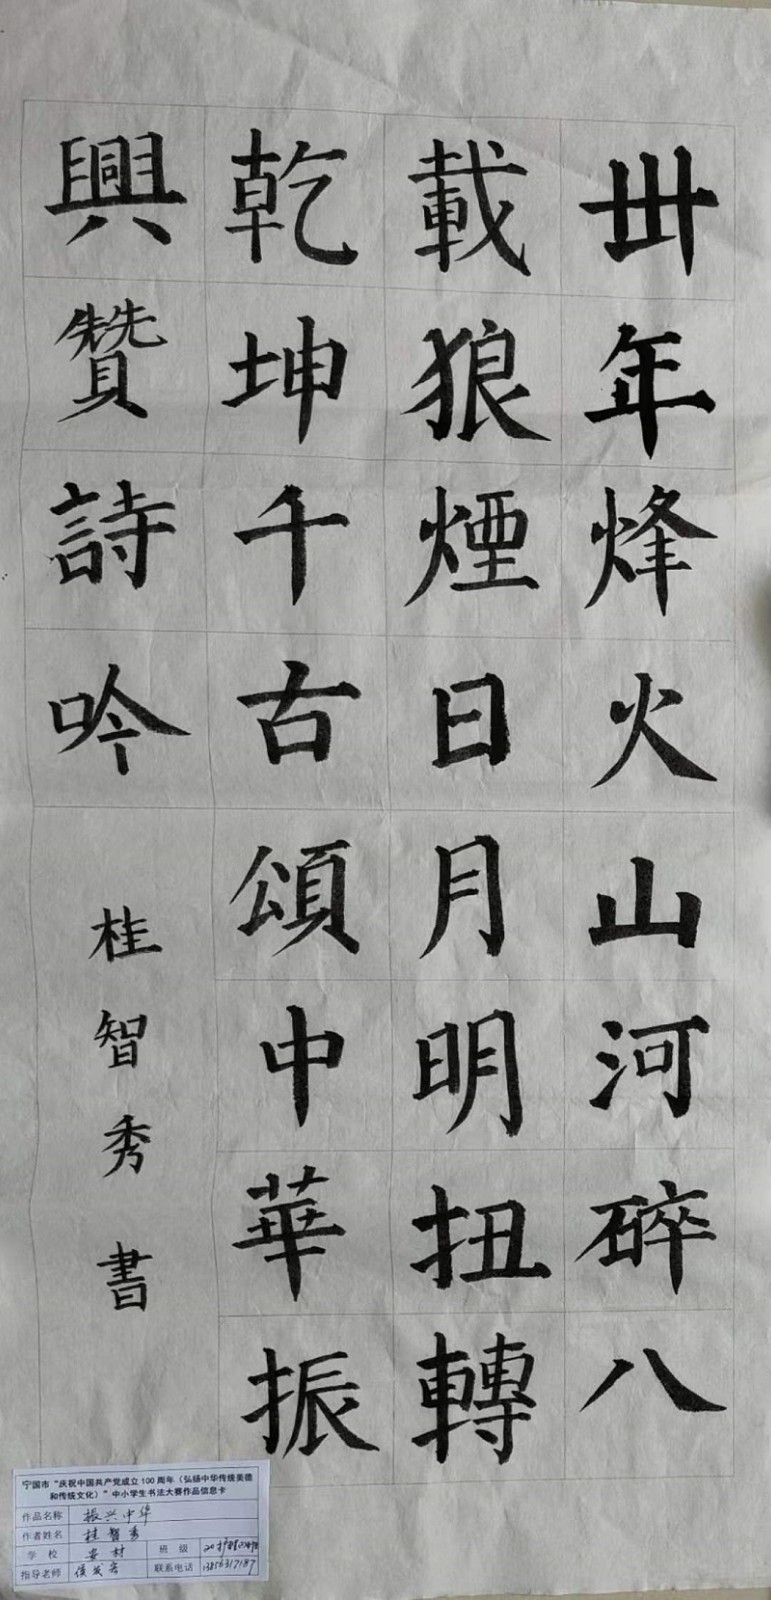 卅年烽火山河碎八
載狼煙日月明扭轉
乾坤千古頌中華振
興贊詩吟
桂智秀書
宁国市“庆祝中国共产党成立100周年（弘扬中华传统美德
和传统文化）”中小学生书法大赛作品信息卡
作品名称 振兴中华
作者姓名 桂智秀
学校 安材 班级
指导老师 侯 联系电话 13856317187